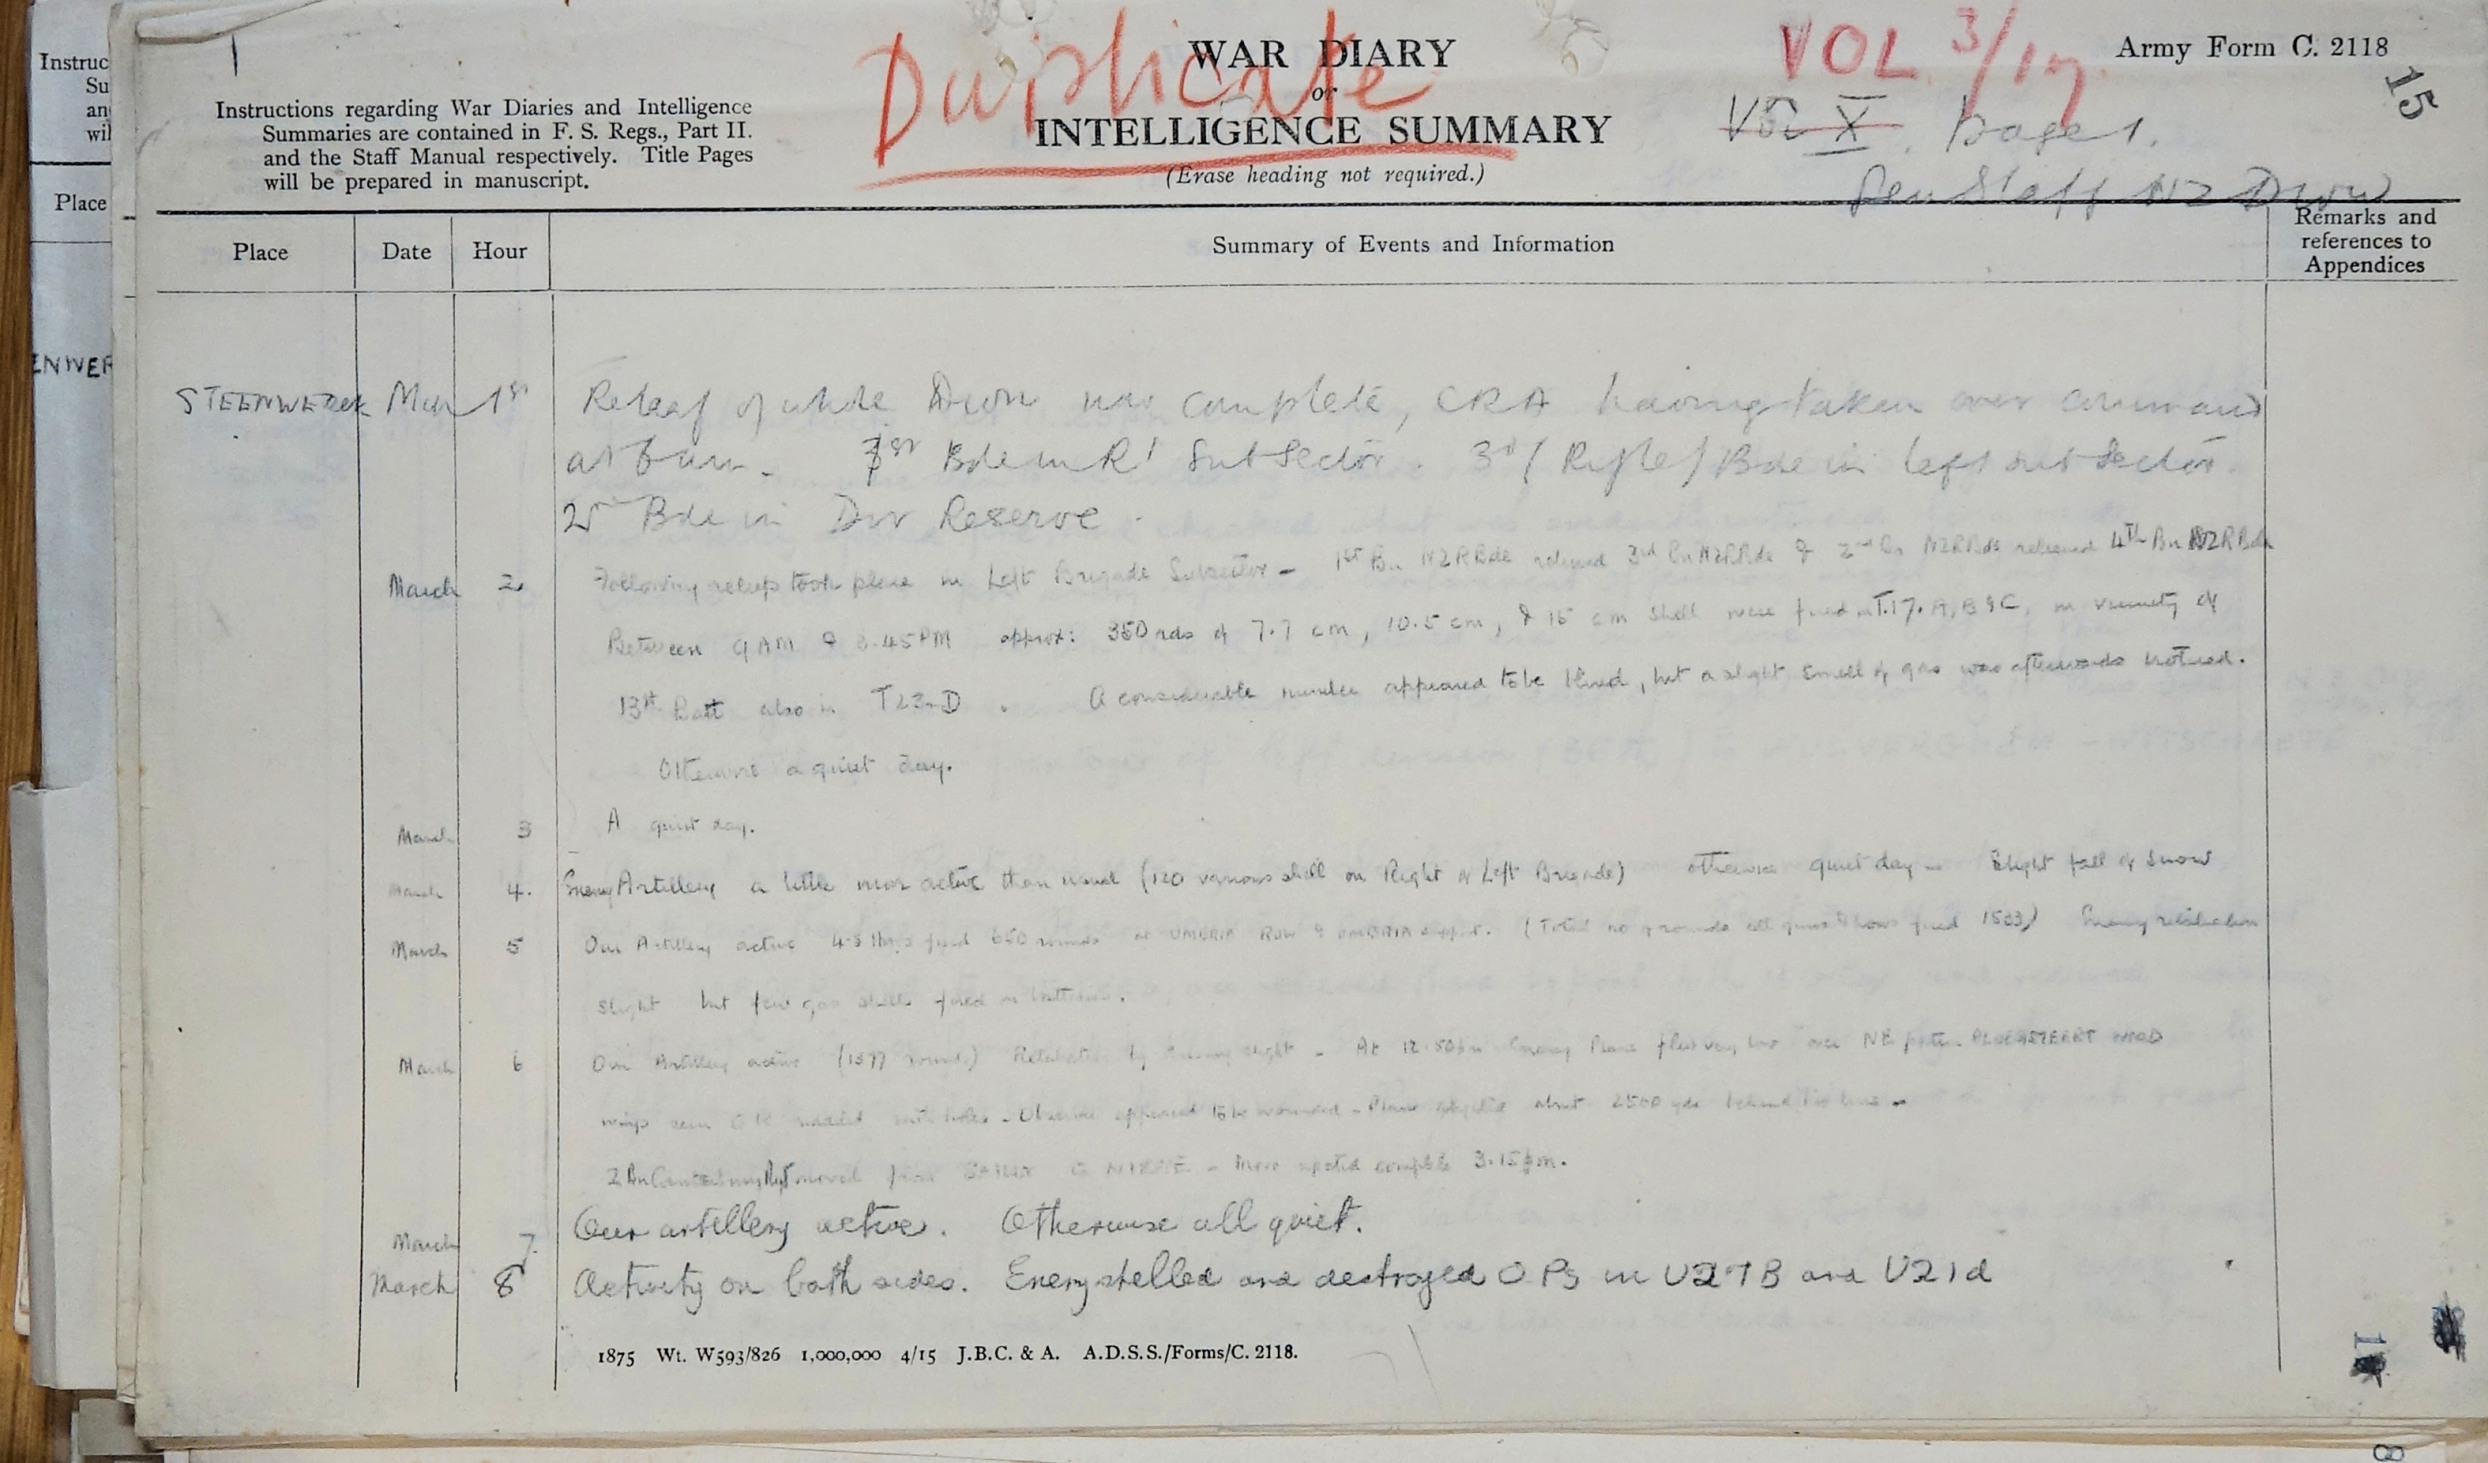 Instruc
Su
an
wil
Place
ENWER
1
Instructions regarding War Diaries and Intelligence
Summaries are contained in F. S. Regs., Part II.
and the Staff Manual respectively. Title Pages
will be prepared in manuscript.
Duplicate
WAR DIARY
or
INTELLIGENCE SUMMARY
(Erase heading not required.)
VOL 3/17.
Vol X. page 1.
Gen Staff NZ Divn
Army Form C. 2118
15
Place Date Hour Summary of Events and Information Remarks and references to Appendices
STEENWERCK Mch 1st Relief of whole Divn now complete, CRA having taken over command
at 6 am. 1st Bde in Rt Subsector. 3rd (Rifle) Bde in left subsector.
2nd Bde in Div Reserve.
March 2. Following reliefs took place in Left Brigade Subsector - 1st Bn NZRBde relieved 3rd Bn NZRBde & 2nd Bn NZRBde relieved 4th Bn NZRBde
Between 9 AM & 3.45 PM approx: 350 rds of 7.7 cm, 10.5 cm, & 15 cm shell were fired in T.17.A,B & C, in vicinity of
13th Batt also in T23.D. A considerable number appeared to be blind, but a slight smell of gas was afterwards noticed.
Otherwise a quiet day.
March 3 A quiet day.
March 4. Enemy Artillery a little more active than usual (120 various shell on Right & Left Brigade) otherwise quiet day - Slight fall of snow
March 5 Our Artillery active 4.5 Hows fired 650 rounds on UMBRIA ROW & UMBRIA support. (Total no of rounds all guns & hows fired 1533) Enemy retaliation
slight but few gas shells fired on batteries.
March 6 Our Artillery active (1377 rounds) Retaliation by Enemy slight - At 12.50pm Enemy Plane flew very low over NE PLOEGSTEERT WOOD
wings seen with holes - Observer appeared to be wounded - Plane about 2500 yds behind line -
2 Bn Canterbury Regt moved from to - Move complete 3.15pm.
March 7. Our artillery active. Otherwise all quiet.
March 8 Activity on both sides. Enemy shelled and destroyed O Ps in U27B and U21d
1875 Wt. W593/826 1,000,000 4/15 J.B.C. & A. A.D.S.S./Forms/C. 2118.
1
8